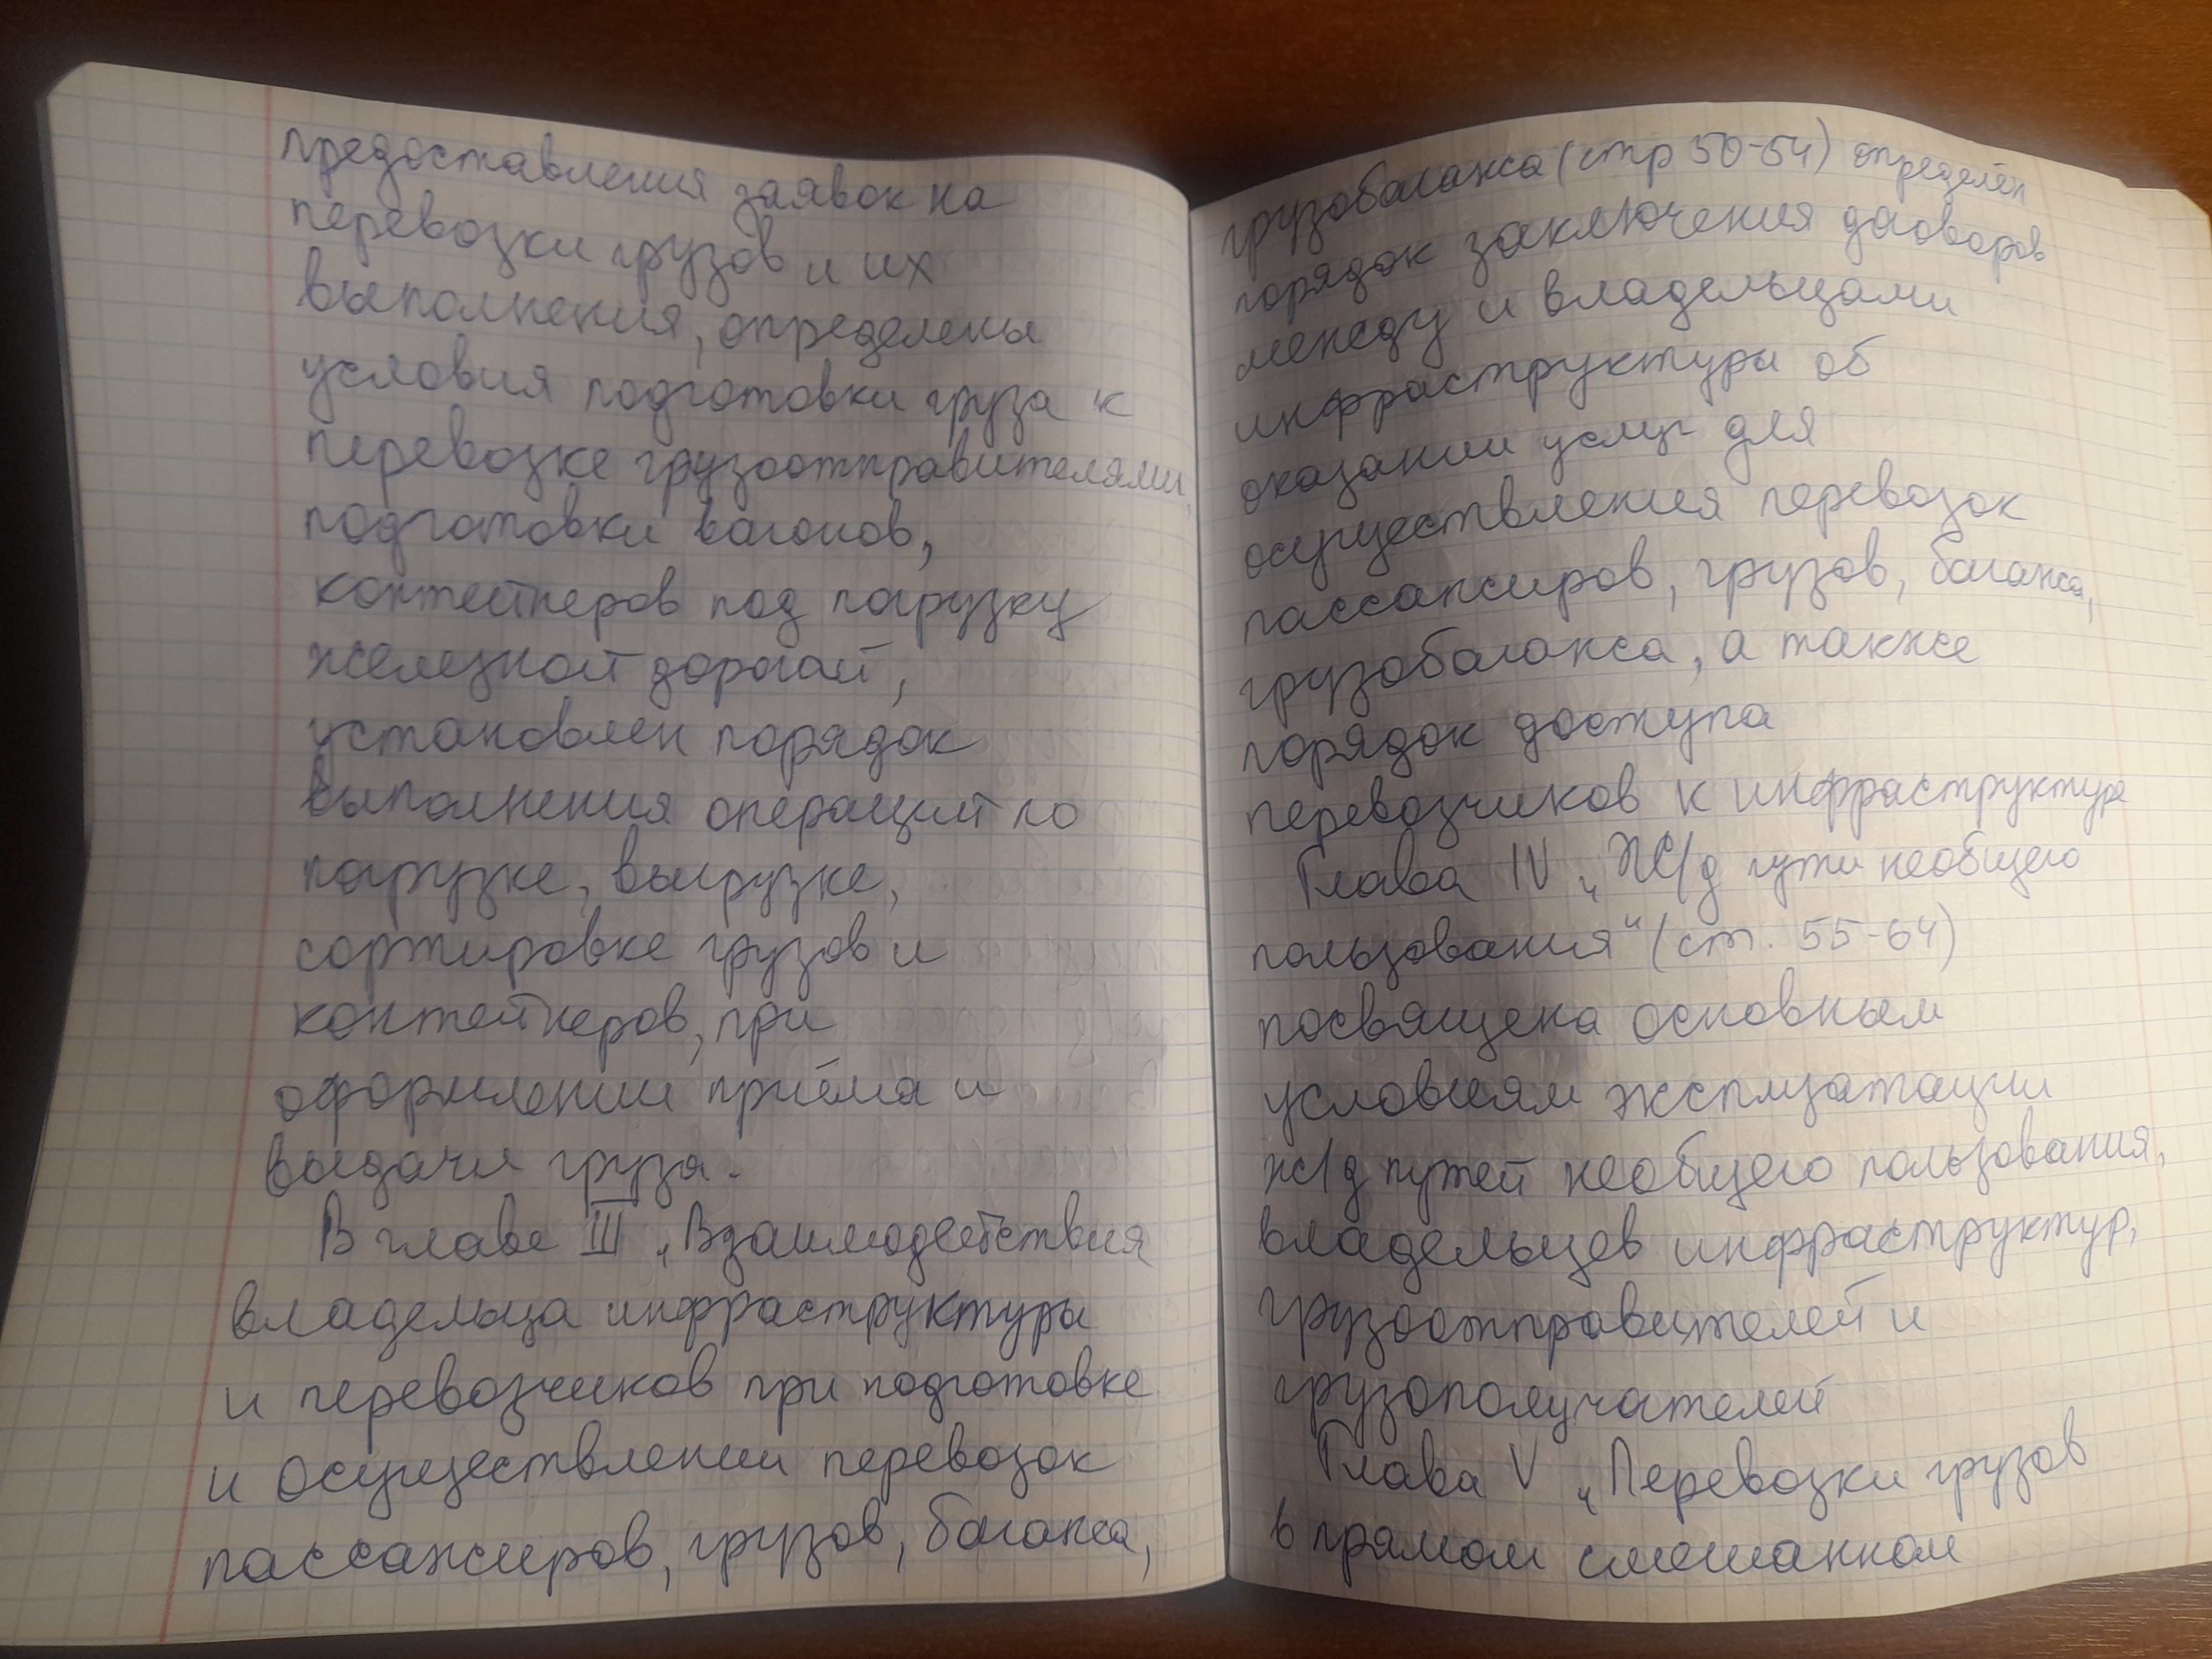 предоставления заявок на
перевозки грузов и их
выполнения, определены
условия подготовки груза к
перевозке грузоотправителями,
подготовки вагонов,
контейнеров под погрузку
железной дорогой,
установлен порядок
выполнения операций по
погрузке, выгрузке,
сортировке грузов и
контейнеров, при
оформлении приёма и
выдачи груза.
В главе III „Взаимодействия
владельца инфраструктуры
и перевозчиков при подготовке
и осуществлении перевозок
пассажиров, грузов, багажа,
грузобагажа (стр 50-54) определён
порядок заключения договоров
между и владельцами
инфраструктуры об
оказании услуг для
осуществления перевозок
пассажиров, грузов, багажа,
грузобагажа, а также
порядок доступа
перевозчиков к инфраструктуре
Глава IV „Ж/д пути необщего
пользования" (ст. 55-64)
посвящена основным
условиям эксплуатации
ж/д путей необщего пользования,
владельцев инфраструктур,
грузоотправителей и
грузополучателей
Глава V „Перевозки грузов
в прямом смешанном